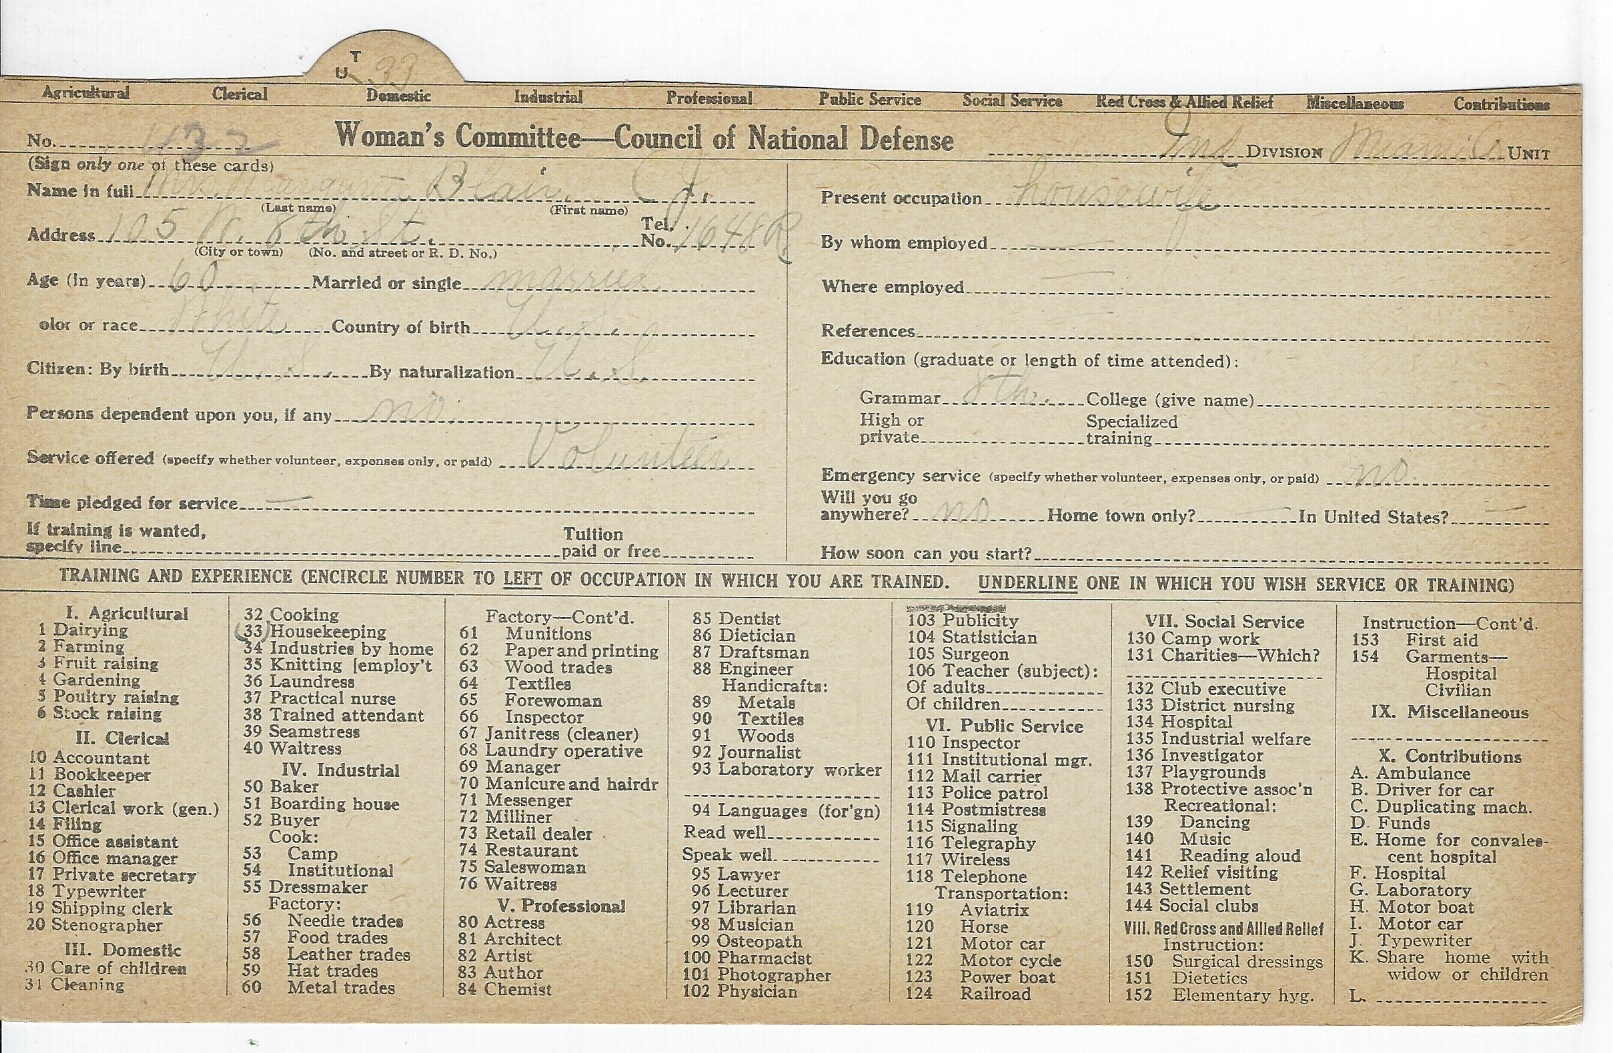 T
U 33
Agricultural Clerical Domestic Industrial Professional Public Service Social Service Red Cross & Allied Relief Miscellaneous Contributions
No. 1132 Woman's Committee—Council of National Defense Ind DIVISION Miami Co. UNIT
(Sign only one of these cards)
Name in full Blair, C J.
(Last name) (First name)
Address 105 W. 8th St. Tel. No. 1648R
(City or town) (No. and street or R. D. No.)
Age (in years) 60 Married or single married
olor or race White Country of birth U. S.
Citizen: By birth U. S. By naturalization U. S.
Persons dependent upon you, if any no.
Service offered (specify whether volunteer, expenses only, or paid) Volunteer
Time pledged for service —
If training is wanted, specify line Tuition paid or free
Present occupation housewife
By whom employed —
Where employed —
References
Education (graduate or length of time attended):
Grammar 8th. College (give name)
High or private Specialized training
Emergency service (specify whether volunteer, expenses only, or paid) no.
Will you go anywhere? no Home town only? — In United States? —
How soon can you start?
TRAINING AND EXPERIENCE (ENCIRCLE NUMBER TO LEFT OF OCCUPATION IN WHICH YOU ARE TRAINED. UNDERLINE ONE IN WHICH YOU WISH SERVICE OR TRAINING)
I. Agricultural
1 Dairying
2 Farming
3 Fruit raising
4 Gardening
5 Poultry raising
6 Stock raising
II. Clerical
10 Accountant
11 Bookkeeper
12 Cashier
13 Clerical work (gen.)
14 Filing
15 Office assistant
16 Office manager
17 Private secretary
18 Typewriter
19 Shipping clerk
20 Stenographer
III. Domestic
30 Care of children
31 Cleaning
32 Cooking
(33) Housekeeping
34 Industries by home
35 Knitting [employ't
36 Laundress
37 Practical nurse
38 Trained attendant
39 Seamstress
40 Waitress
IV. Industrial
50 Baker
51 Boarding house
52 Buyer
Cook:
53 Camp
54 Institutional
55 Dressmaker
Factory:
56 Needle trades
57 Food trades
58 Leather trades
59 Hat trades
60 Metal trades
Factory—Cont'd.
61 Munitions
62 Paper and printing
63 Wood trades
64 Textiles
65 Forewoman
66 Inspector
67 Janitress (cleaner)
68 Laundry operative
69 Manager
70 Manicure and hairdr
71 Messenger
72 Milliner
73 Retail dealer
74 Restaurant
75 Saleswoman
76 Waitress
V. Professional
80 Actress
81 Architect
82 Artist
83 Author
84 Chemist
85 Dentist
86 Dietician
87 Draftsman
88 Engineer
Handicrafts:
89 Metals
90 Textiles
91 Woods
92 Journalist
93 Laboratory worker
94 Languages (for'gn)
Read well
Speak well
95 Lawyer
96 Lecturer
97 Librarian
98 Musician
99 Osteopath
100 Pharmacist
101 Photographer
102 Physician
103 Publicity
104 Statistician
105 Surgeon
106 Teacher (subject):
Of adults
Of children
VI. Public Service
110 Inspector
111 Institutional mgr.
112 Mail carrier
113 Police patrol
114 Postmistress
115 Signaling
116 Telegraphy
117 Wireless
118 Telephone
Transportation:
119 Aviatrix
120 Horse
121 Motor car
122 Motor cycle
123 Power boat
124 Railroad
VII. Social Service
130 Camp work
131 Charities—Which?
132 Club executive
133 District nursing
134 Hospital
135 Industrial welfare
136 Investigator
137 Playgrounds
138 Protective assoc'n
Recreational:
139 Dancing
140 Music
141 Reading aloud
142 Relief visiting
143 Settlement
144 Social clubs
VIII. Red Cross and Allied Relief
Instruction:
150 Surgical dressings
151 Dietetics
152 Elementary hyg.
Instruction—Cont'd.
153 First aid
154 Garments—
Hospital
Civilian
IX. Miscellaneous
X. Contributions
A. Ambulance
B. Driver for car
C. Duplicating mach.
D. Funds
E. Home for convales-
cent hospital
F. Hospital
G. Laboratory
H. Motor boat
I. Motor car
J. Typewriter
K. Share home with
widow or children
L.